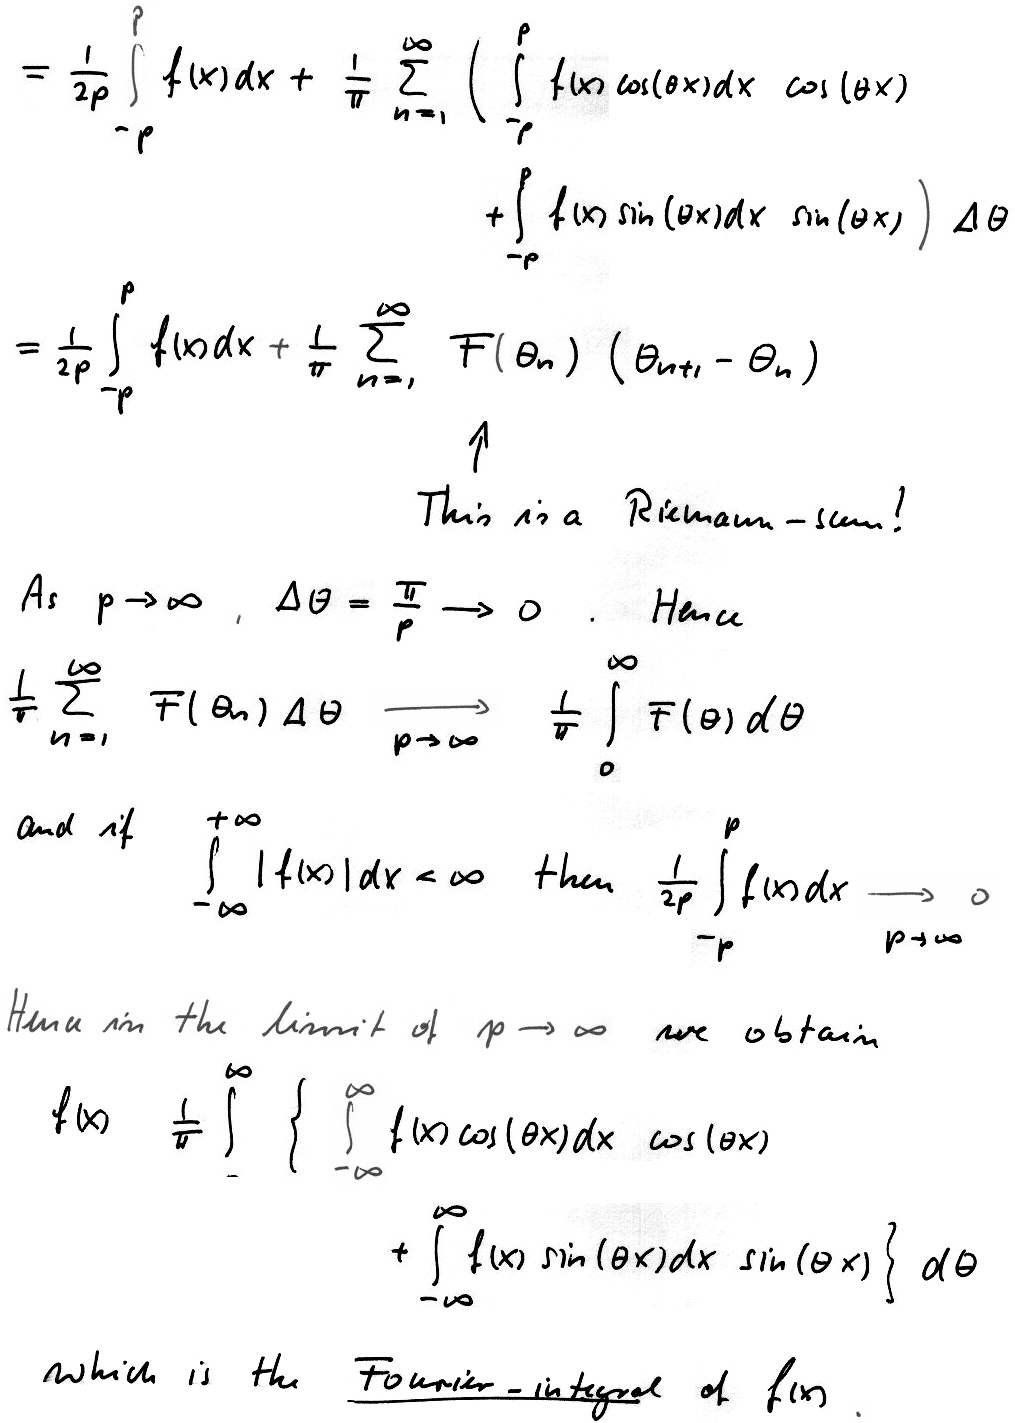 = 1/2p ∫_{-p}^{p} f(x)dx + 1/π ∑_{n=1}^{∞} ( ∫_{-p}^{p} f(x) cos(θx)dx cos(θx)
+ ∫_{-p}^{p} f(x) sin(θx)dx sin(θx) ) Δθ
= 1/2p ∫_{-p}^{p} f(x)dx + 1/π ∑_{n=1}^{∞} F(θn) (θn+1 - θn)
↑
This is a Riemann-sum!
As p → ∞, Δθ = π/p → 0. Hence
1/π ∑_{n=1}^{∞} F(θn) Δθ →_{p→∞} 1/π ∫_{0}^{∞} F(θ) dθ
and if ∫_{-∞}^{+∞} |f(x)|dx < ∞ then 1/2p ∫_{-p}^{p} f(x)dx →_{p→∞} 0
Hence in the limit of p → ∞ we obtain
f(x) 1/π ∫^{∞} { ∫_{-∞}^{∞} f(x) cos(θx)dx cos(θx)
+ ∫_{-∞}^{∞} f(x) sin(θx)dx sin(θx) } dθ
which is the Fourier-integral of f(x).